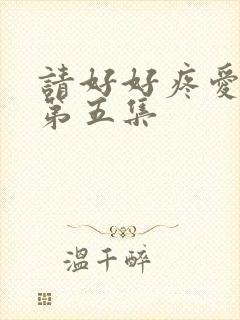 請好好疼愛
第五集
溫千醉